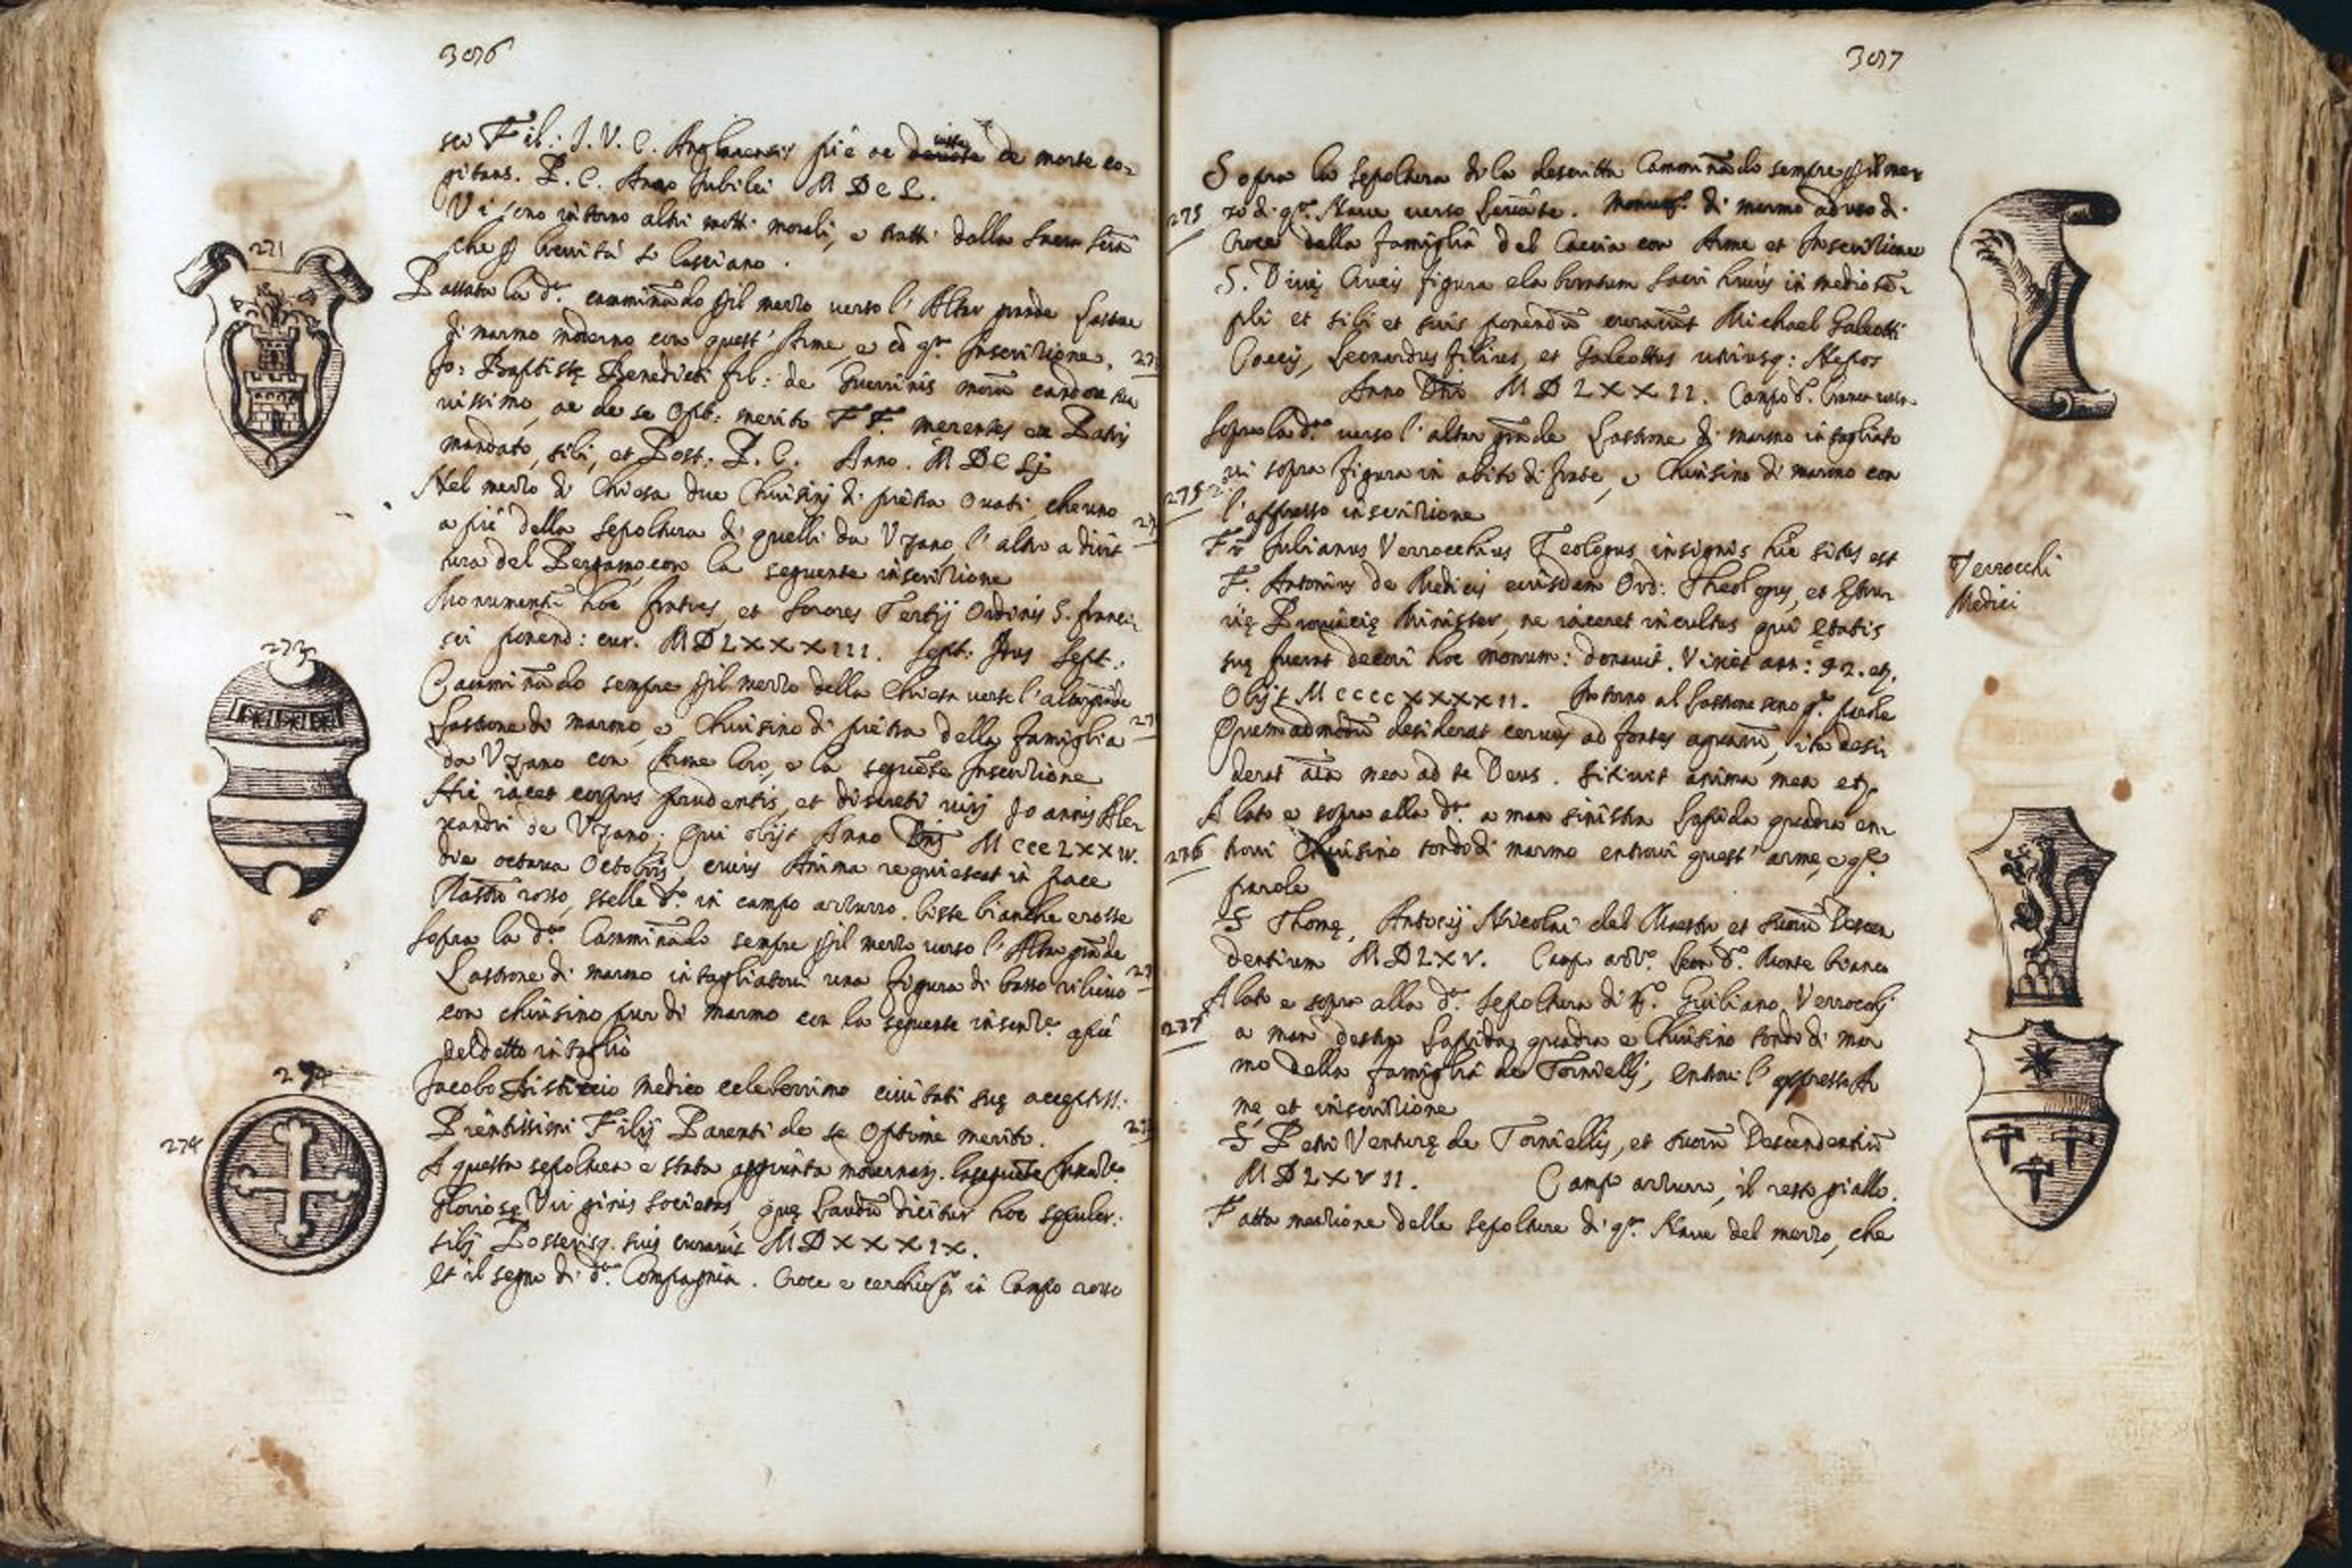 306
se Fil: J. V. C. Anglarensis piè ac de morte co-
gitans. P. C. Anno Jubilei M D C L.
Vi sono intorno altri motti morali, e tratti dalla Sacra
che p brevità si lasciano.
271
Passata la d.ª camminãdo p il mezzo verso l'Altar grande Lastrone
di marmo moderno con quest'Arme, e cõ q.ª Inscrizione.
Jo: Baptistę Benedicti fil: de Guerrinis morũ candore
vissimo, ac de se Opt: merito F F. merentes ex Patris
mandato, sibi, et Post: P. C. Anno. M D C Lj
Nel mezzo di Chiesa due Chiusinj di pietra ovati che uno
a piè della sepoltura di quelli da Vzano, l'altro a dirit
tura del Pergamo con la seguente inscrizione
Monumentũ hoc fratres, et Sorores Tertij Ordinis S. Franci-
sci ponend: cur. M D L X X X I I I. Sept: Idus Sept:
273
Camminãdo sempre p il mezzo della Chiesa verso l'altar grãde
Lastrone di marmo, e Chiusino di pietra della famiglia
da Vzano con Arme loro, e la seguẽte Inscrizione
Hic iacet corpus prudentis, et discreti viri Joannis Alex
xandri de Vzano, qui obijt Anno Dnj M CCC L X X IV.
die octava Octobris, cuius Anima requiescat in pace
Nastro rosso, stelle d.º in campo azzurro. liste bianche e rosse
Sopra la d.ª Camminãdo sempre p il mezzo verso l'Altar grãde
Lastrone di marmo intagliatovi una figura di basso rilievo
con chiusino pur di marmo con la seguente inscriz.e a piè
del detto intaglio
274
Jacobo medico celeberrimo civitati suę acceptiss:
Pientissimi Filij Parenti de se Optime merito.
274
A questa sepoltura e stata aggiunta la seguẽte
Gloriosę Virginis societas, quę Laudũ dicitur hoc sepulcr:
sibj Posterisq. suis curavit M D X X X I X.
et il segno di d.ª Compagnia. Croce e cerchio in Campo rosso
307
Sopra la Sepoltura di la descritta Camminãdo sempre p il mez
275 zo di q.ª Nave verso Levãte. di marmo ad uso di
Croce della famiglia del Caccia con Arme et Inscrizione
S. Divę Crucis figura elaboratum Sacri huius in medio tẽ-
pli et sibi et suis ponendũ curavit Michael Galeotti
Caccis, Leonardus filius, et Galeottus utriusq: Nepos
Anno Dni M D L X X I I. Campo d.º
Sopra la d.ª verso l'altar grãde Lastrone di marmo intagliato
vi sopra figura in abito di frate, e Chiusino di marmo con
275 l'appresso inscrizione
Fr Julianus Verrocchius Teologus insignis hic situs est
Verrocchi
Medici
F. Antonius de Medicis eiusdem Ord: Theologus, et Etru-
rię Provincię Minister, ne iaceret incultus qui ętatis
suę fuerat decori hoc monum: donavit. Vixit ann: 92. etc.
Obijt M C C C C X X X X I I. Intorno al Lastrone sono q.e parole
Quemadmodũ desiderat cervus ad fontes aquarũ, ita desi
derat aĩa mea ad te Deus. Sitivit anima mea etc.
A lato e sopra alla d.ª a man sinistra Lapida quadra en-
276 trovi Chiusino tondo di marmo entrovi quest'arme, e q.e
parole
S Thomę, Antonij Nicolai del Maestro et suorũ Descen
dentium M D L X V. Camp. azz.º Leon d.º Monte bianco
A lato e sopra alla d.ª Sepoltura di F. Giuliano Verrocchi
277 a man destra Lapida quadra e Chiusino tondo di mar
mo della famiglia de Tornielli, entrovi l'appresso Ar
me, et inscrizione
S Petri Venturę de Torniellis, et suorũ Descendentiũ
M D L X V I I. Campo azzurro, il resto giallo.
Fatta menzione delle sepolture di q.ª Nave del mezzo, che